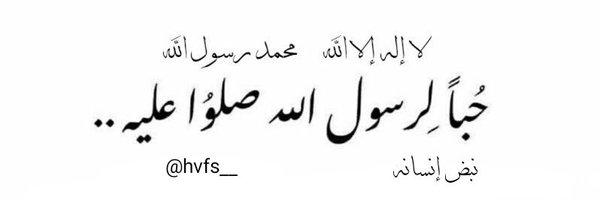 لا إله إلا الله محمد رسول الله
حُباً لِرسول الله صلوُا عليه ..
نبض إنسانه @hvfs__